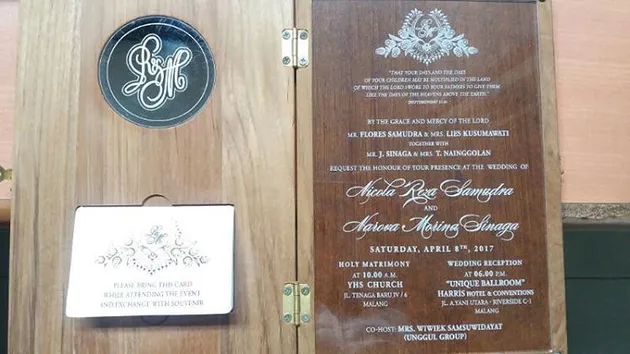 R&M
PLEASE BRING THIS CARD
WHILE ATTENDING THE EVENT
AND EXCHANGE WITH SOUVENIR
"THAT YOUR DAYS AND THE DAYS
OF YOUR CHILDREN MAY BE MULTIPLIED IN THE LAND
OF WHICH THE LORD SWORE TO YOUR FATHERS TO GIVE THEM
LIKE THE DAYS OF THE HEAVENS ABOVE THE EARTH."
DEUTERONOMY 11:21
BY THE GRACE AND MERCY OF THE LORD
MR. FLORES SAMUDRA & MRS. LIES KUSUMAWATI
TOGETHER WITH
MR. J. SINAGA & MRS. T. NAINGGOLAN
REQUEST THE HONOUR OF YOUR PRESENCE AT THE WEDDING OF
Nicola Reza Samudra
AND
Marova Morina Sinaga
SATURDAY, APRIL 8TH, 2017
HOLY MATRIMONY
AT 10.00 A.M.
YHS CHURCH
JL. TENAGA BARU IV / 6
MALANG
WEDDING RECEPTION
AT 06.00 P.M.
"UNIQUE BALLROOM"
HARRIS HOTEL & CONVENTIONS
JL. A.YANI UTARA - RIVERSIDE C-1
MALANG
CO-HOST: MRS. WIWIEK SAMSUWIDAYAT
(UNGGUL GROUP)